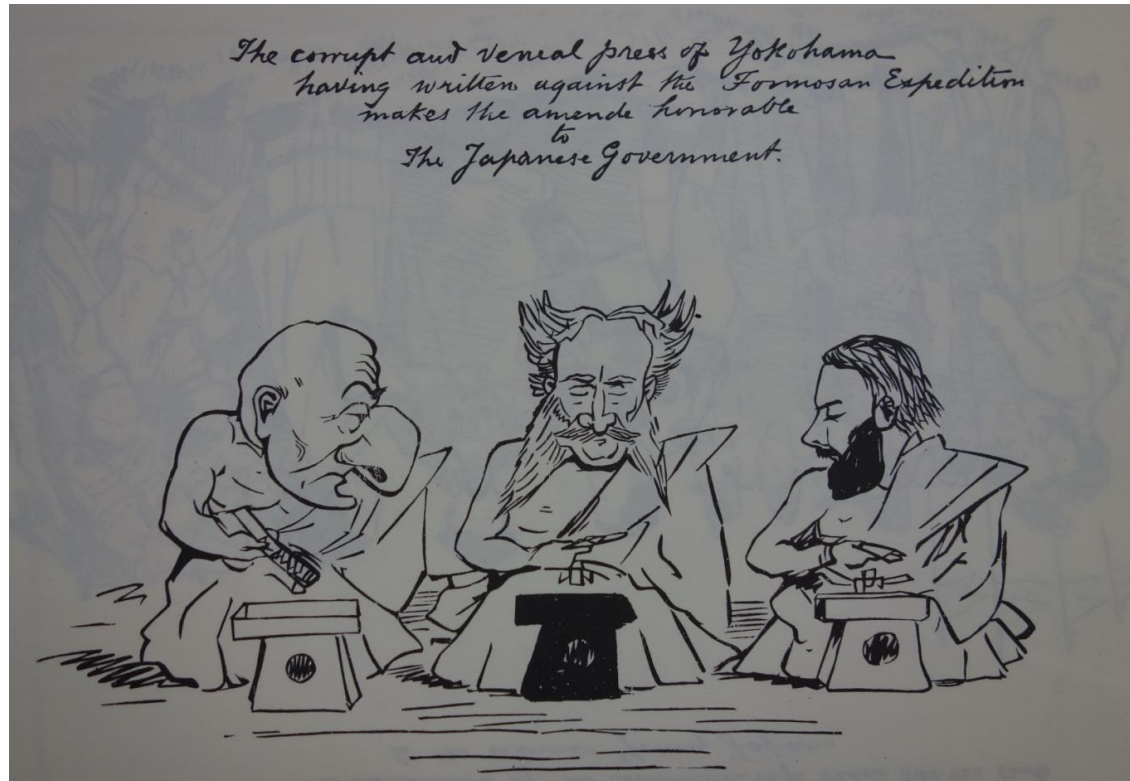 The corrupt and venial press of Yokohama
having written against the Formosan Expedition
makes the amende honorable
to
The Japanese Government.